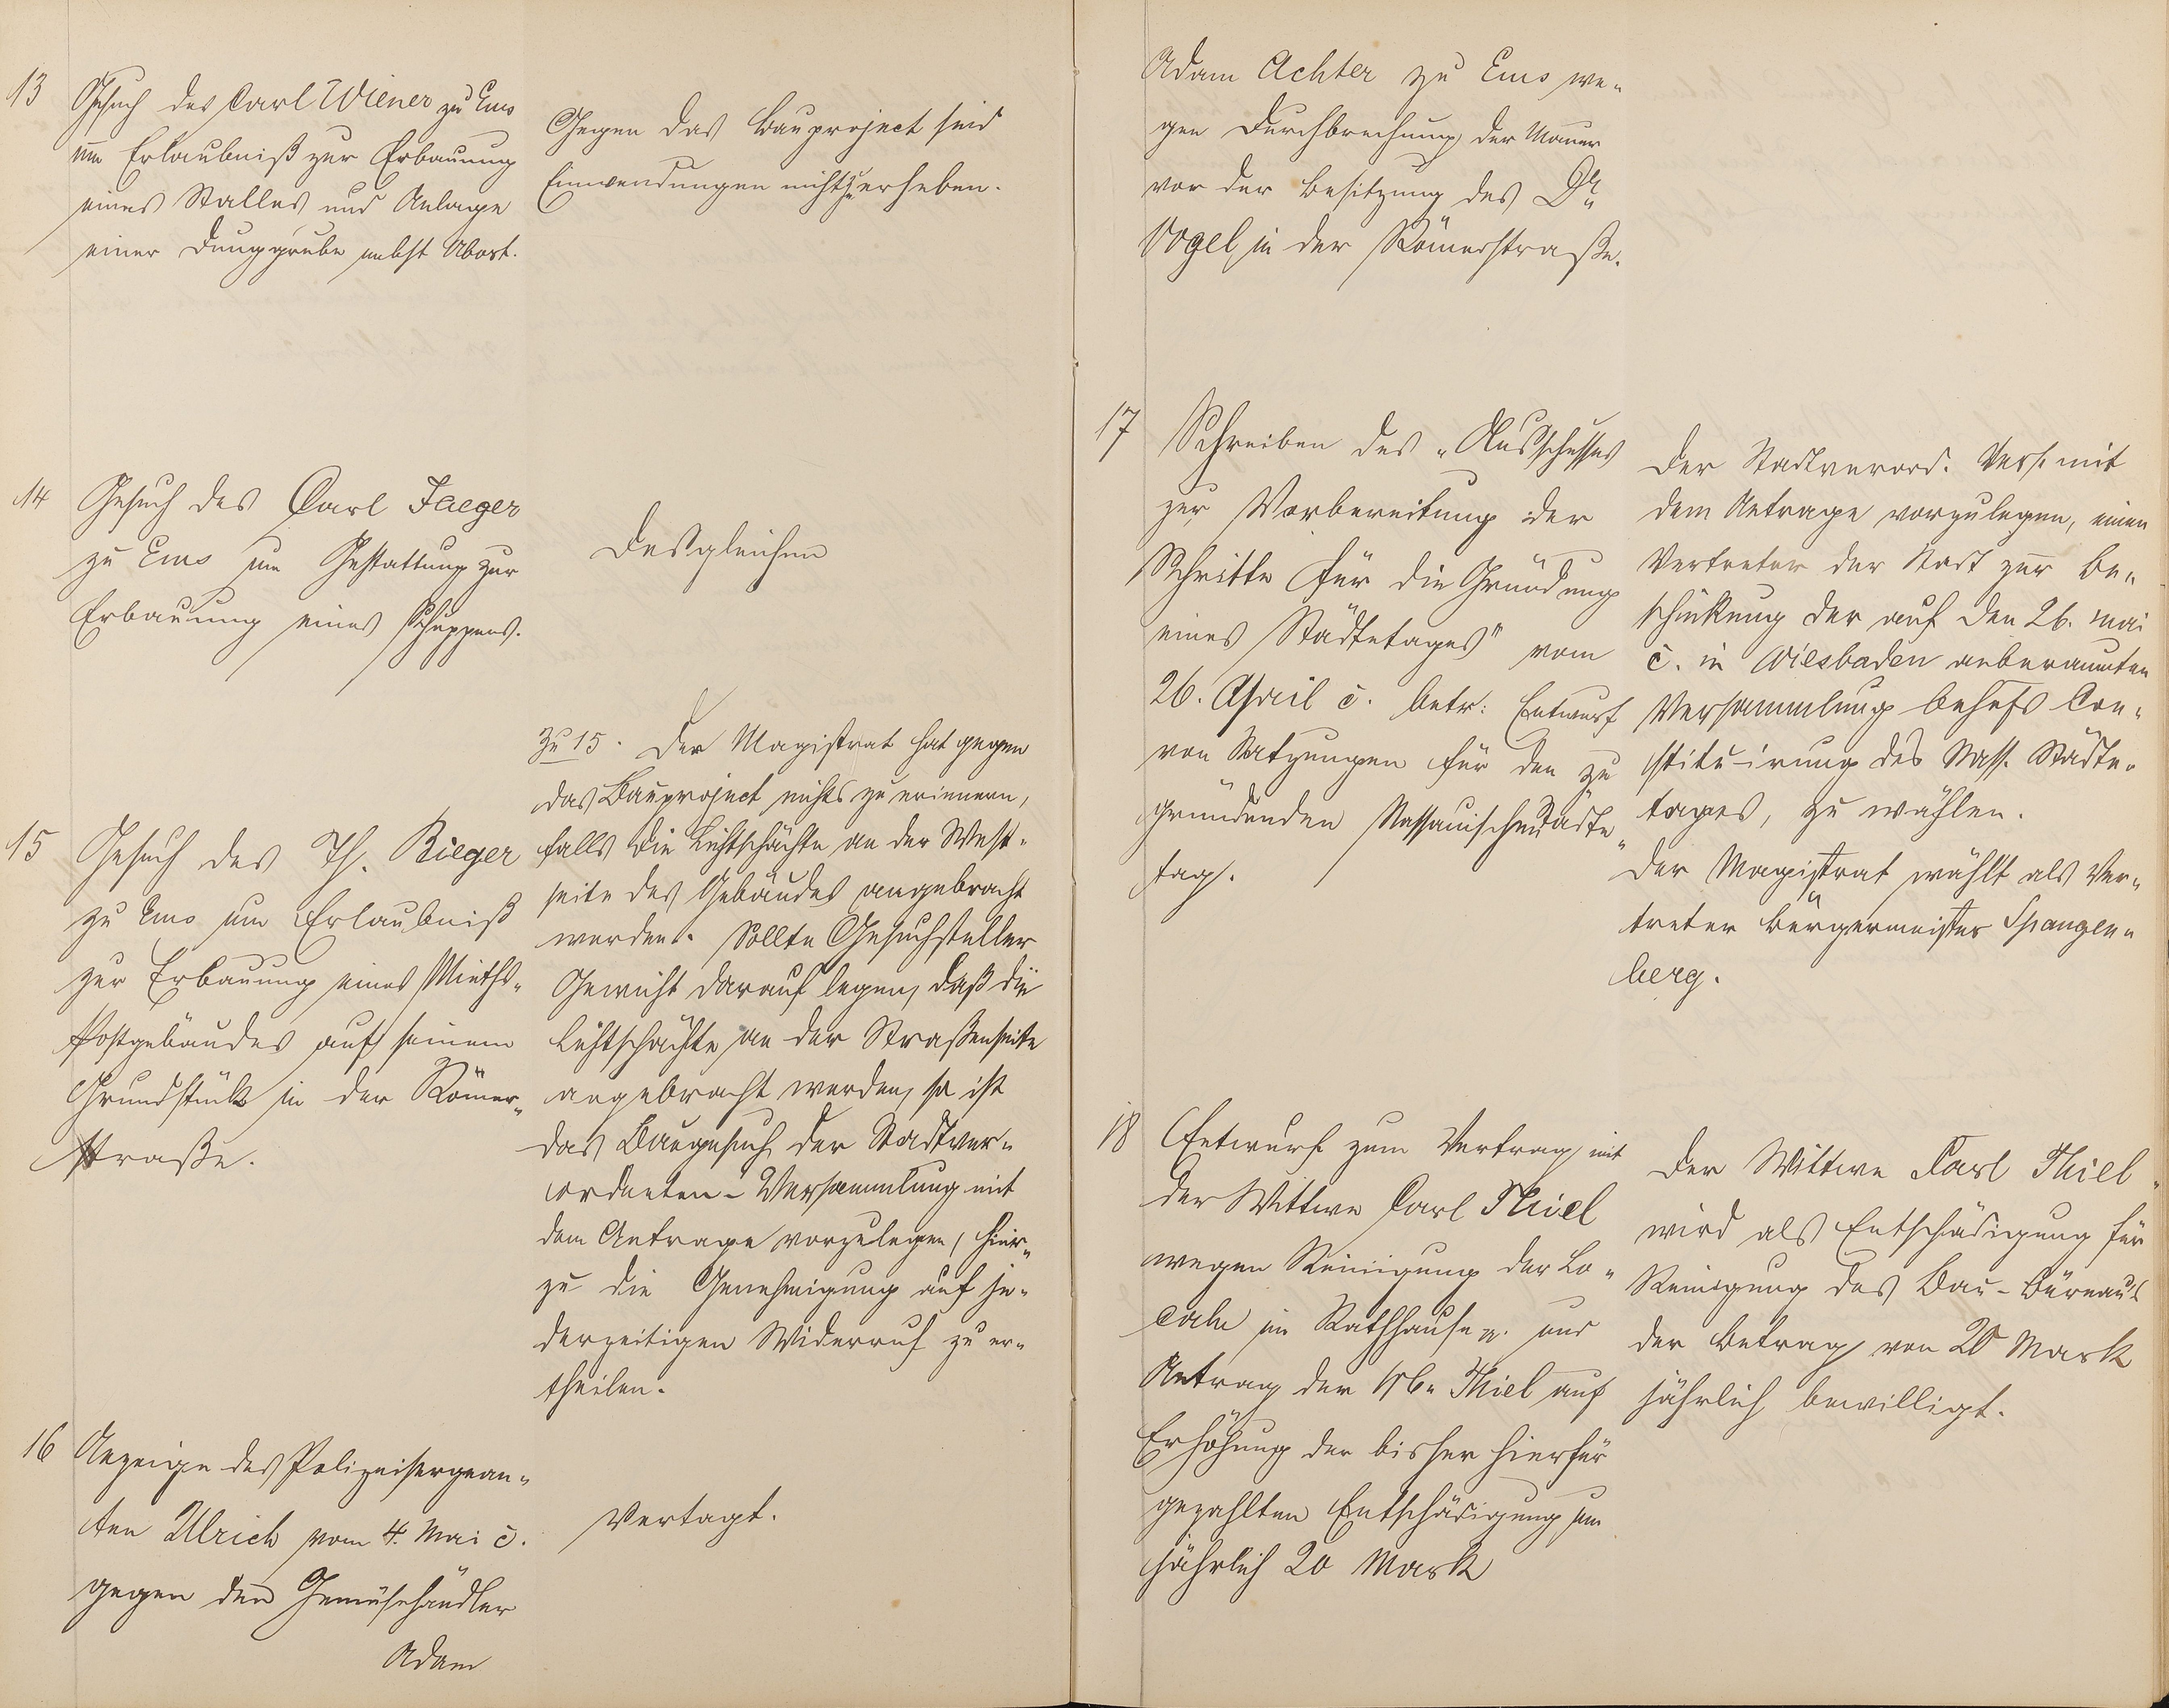 13
Gesuch des Carl Wiener zu Ems
um Erlaubniß zur Erbauung
eines Stalles und Anlage
einer Dunggrube nebst Abort.
Gegen das Bauproject sind
Einwendungen nicht zu erheben.
14
Gesuch des Carl Jaeger
zu Ems um Gestattung zur
Erbauung eines Schuppens.
Desgleichen
15
Gesuch des Th. Rieger
zu Ems um Erlaubniß
zur Erbauung eines Mieths-
Postgebäudes auf seinem
Grundstück in der Römer-
straße.
Zu 15. Der Magistrat hat gegen
das Bauproject nichts zu erinnern,
falls die Lichtschächte an der West-
seite des Gebäudes angebracht
werden. Sollte Gesuchsteller
Gewicht darauf legen, daß die
Lichtschächte an der Straßenseite
angebracht werden, so ist
das Baugesuch der Stadtver-
ordneten-Versammlung mit
dem Antrage vorzulegen, hier-
zu die Genehmigung auf je-
derzeitigen Widerruf zu er-
theilen.
16
Anzeige des Polizeisergean-
ten Ulrich vom 4. Mai c.
gegen den Gemüsehändler
Adam
Vertagt.
Adam Achter zu Ems we-
gen Durchbrechung der Mauer
vor der Besitzung des Dr.
Vogel in der Römerstraße.
17
Schreiben des „Ausschusses
zur Vorbereitung der
Schritte für die Gründung
eines Städtetages" vom
26. April c. betr. Entwurf
von Satzungen für den zu
gründenden Nassauischen Städte-
tag.
Der Stadtverord. Vers. mit
dem Antrage vorzulegen, einen
Vertreter der Stadt zur Be-
schickung der auf den 26. Mai
c. in Wiesbaden anberaumten
Versammlung behufs Con-
stituirung des Nass. Städte-
tages, zu wählen.
Der Magistrat wählt als Ver-
treter Bürgermeister Spangen-
berg.
18
Entwurf zum Vertrag mit
der Wittwe Carl Thiel
wegen Reinigung der Lo-
cale im Rathhause pp. und
Antrag der Wb. Thiel auf
Erhöhung der bisher hierfür
gezahlten Entschädigung um
jährlich 20 Mark
Der Wittwe Carl Thiel
wird als Entschädigung für
Reinigung des Bau-Büreaus
der Betrag von 20 Mark
jährlich bewilligt.